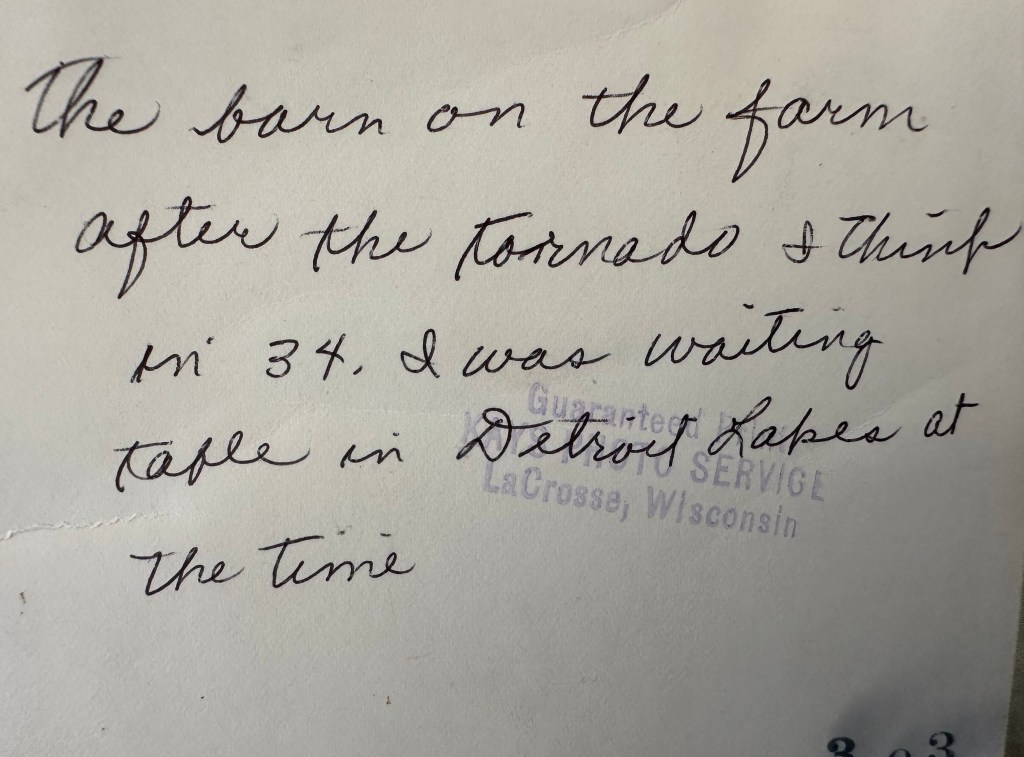 The barn on the farm
after the tornado I think
in 34. I was waiting
table in Detroit Lakes at
the time
Guaranteed
PHOTO SERVICE
LaCrosse, Wisconsin
3 3